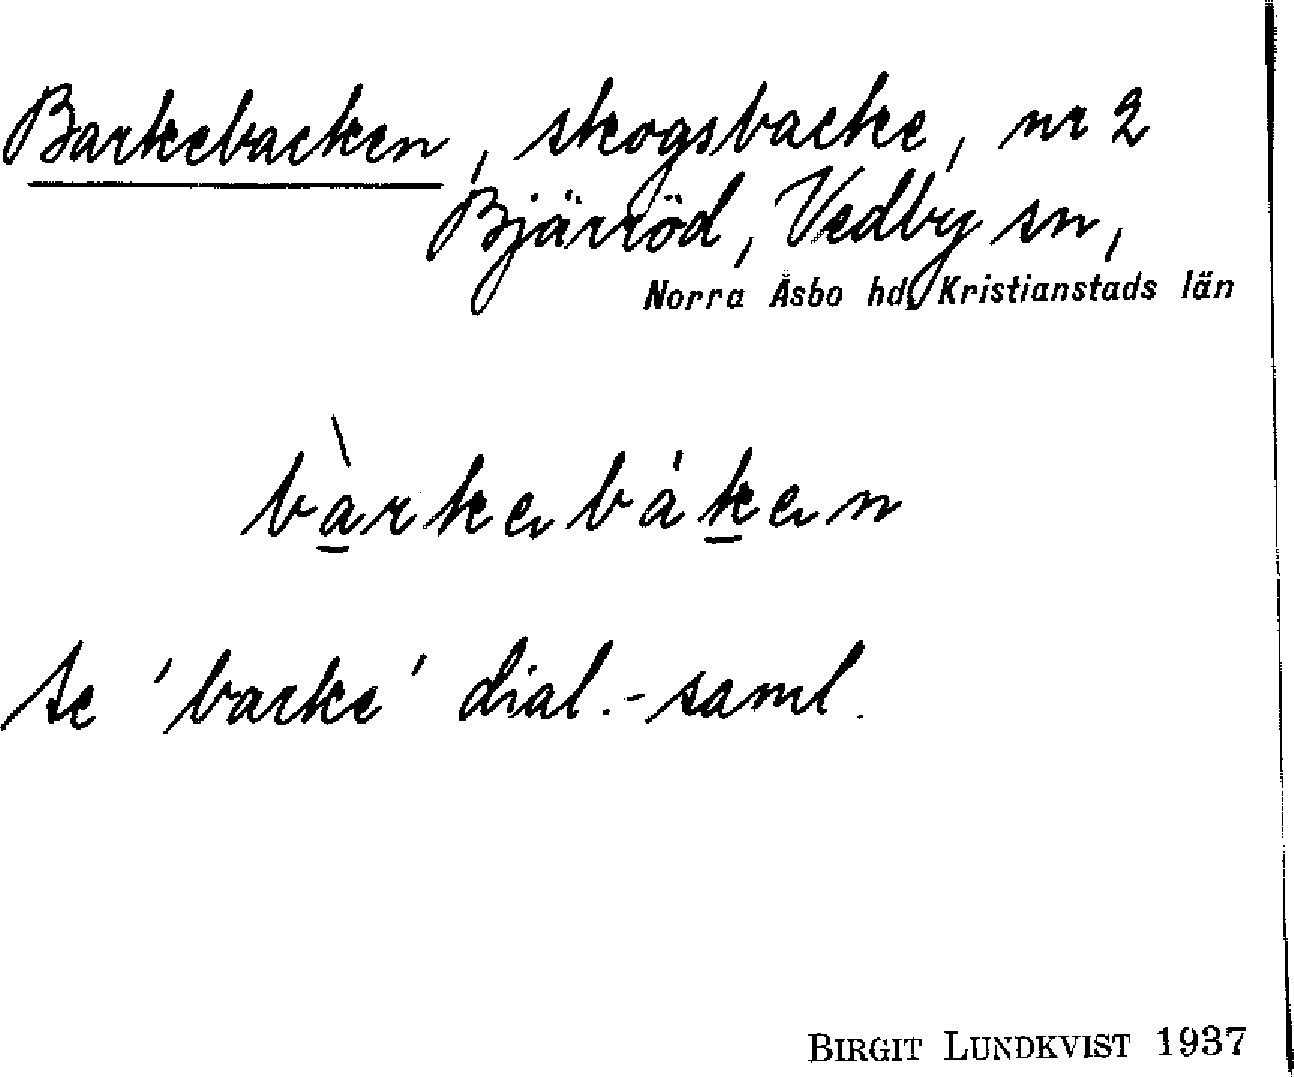 Barkebacken, skogsbacke, nr 2
Bjärröd, Vedby sn,
Norra Åsbo hd, Kristianstads län
bàrkebáken
se 'barke' dial.-saml.
BIRGIT LUNDKVIST 1937